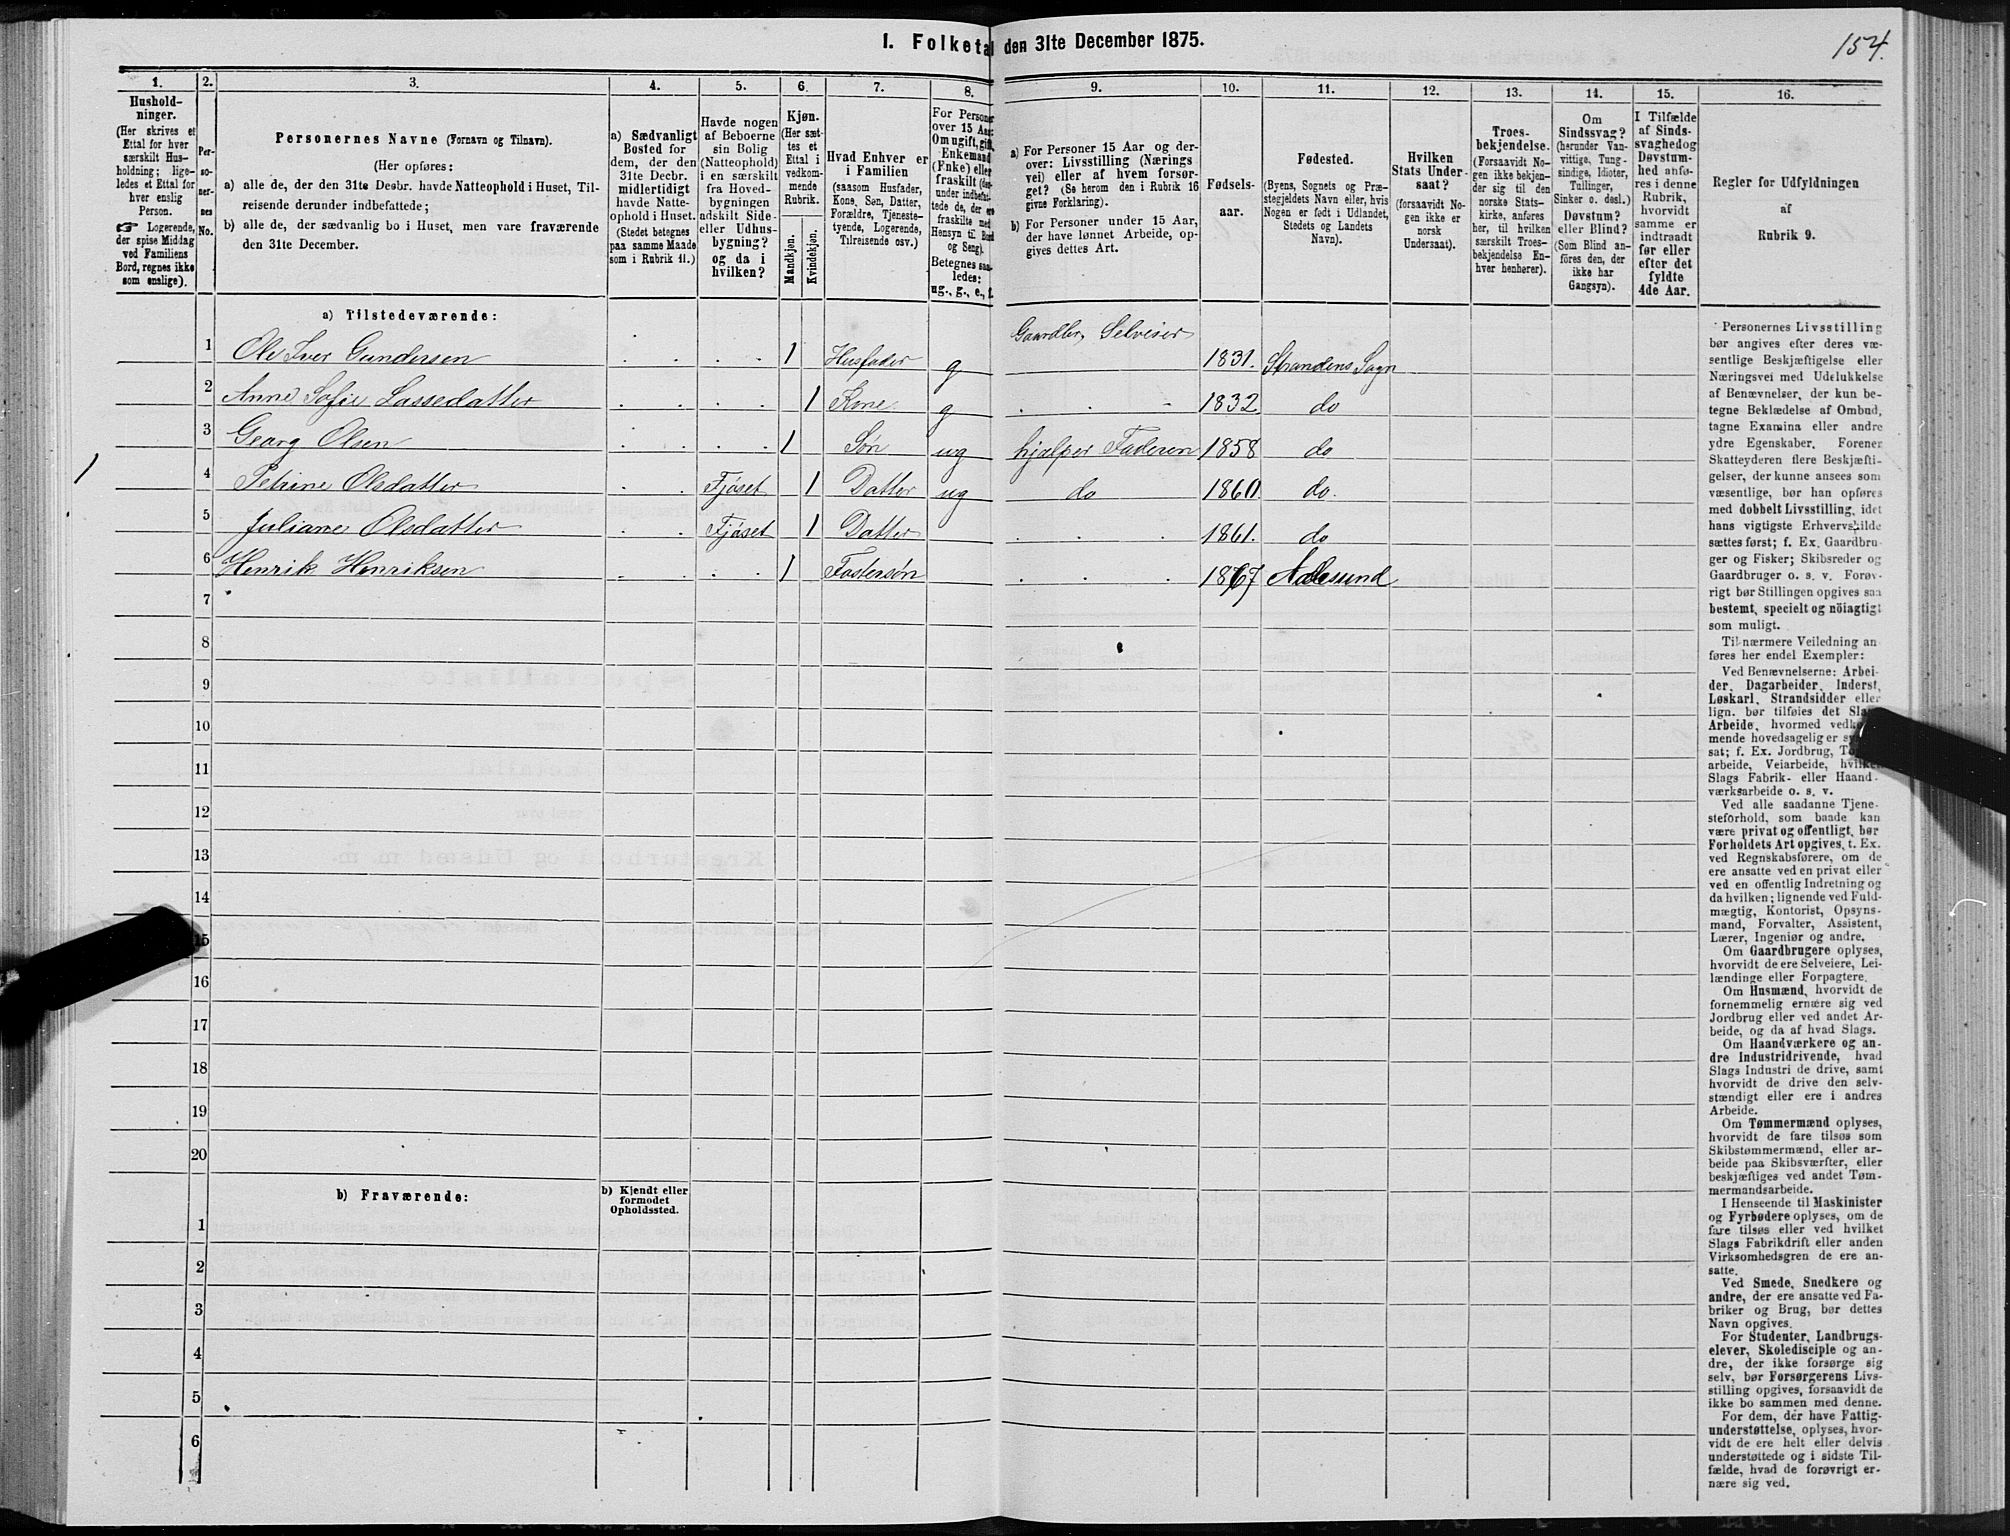 I. Folketal den 31te December 1875.
154.
1. 2. 3. 4. 5. 6. 7. 8. 9. 10. 11. 12. 13. 14. 15. 16.
Hushold-
ninger.
(Her skrives et
Ettal for hver
særskilt Hus-
holdning; lige-
ledes et Ettal for
hver enslig
Person.
☞ Logerende,
der spise Middag
ved Familiens
Bord, regnes ikke
som enslige).
Per-
so-
ner-
nes
No.
Personernes Navne (Fornavn og Tilnavn).
(Her opføres:
a) alle de, der den 31te Decbr. havde Natteophold i Huset, Til-
reisende derunder indbefattede;
b) alle de, der sædvanlig bo i Huset, men vare fraværende
den 31te December.
a) Sædvanligt
Bosted for
dem, der den
31te Decbr.
midlertidigt
havde Natte-
ophold i Huset.
(Stedet betegnes
paa samme Maade
som i Rubrik 11.)
Havde nogen
af Beboerne
sin Bolig
(Natteophold)
i en særskilt
fra Hoved-
bygningen
adskilt Side-
eller Udhus-
bygning?
og da i
hvilken?
Kjøn.
(Her sæt-
tes et
Ettal i
vedkom-
mende
Rubrik.
Mandkjøn.
Kvindekjøn.
Hvad Enhver er
i Familien
(saasom Husfader,
Kone, Søn, Datter,
Forældre, Tjeneste-
tyende, Logerende,
Tilreisende osv.)
For Personer
over 15 Aar:
Om ugift, gift,
Enkemand
(Enke) eller
fraskilt (der-
under indbefat-
tede de, der ere
fraskilte med
Hensyn til Bord
og Seng).
Betegnes saa-
ledes:
ug., g., e., f.
a) For Personer 15 Aar og der-
over: Livsstilling (Nærings
vei) eller af hvem forsør-
get? (Se herom den i Rubrik 16
givne Forklaring).
b) For Personer under 15 Aar,
der have lønnet Arbeide, op-
gives dettes Art.
Fødsels-
aar.
Fødested.
(Byens, Sognets og Præ-
stegjeldets Navn eller, hvis
Nogen er født i Udlandet,
Stedets og Landets
Navn).
Hvilken
Stats Under-
saat?
(forsaavidt No-
gen ikke er
norsk
Undersaat).
Troes-
bekjendelse.
(Forsaavidt No-
gen ikke bekjen-
der sig til den
norske Stats-
kirke, anføres
her, til hvilken
særskilt Troes-
bekjendelse En-
hver henhører).
Om
Sindssvag?
(herunder Van-
vittige, Tung-
sindige, Idioter,
Tullinger,
Sinker o. desl.)
Døvstum?
eller Blind?
(Som Blind an-
føres den, der
ikke har
Gangsyn).
I Tilfælde
af Sinds-
svaghed og
Døvstum-
hed anfø-
res i denne
Rubrik,
hvorvidt
samme er
indtraadt
før eller
efter det
fyldte
4de Aar.
Regler for Udfyldningen
af
Rubrik 9.
a) Tilstedeværende:
1 Ole Iver Gundersen 1 Husfader g Gaardbr. Selveier 1831. Strandens Sogn
2 Anne Sofie Lassedatter 1 Kone g 1832 do
3 Georg Olsen 1 Søn ug hjælper Faderen 1858 do
1 4 Petrine Olsdatter Fjøset 1 Datter ug do 1860. do.
5 Juliane Olsdatter Fjøset 1 Datter 1861. do
6 Henrik Henriksen 1 Fostersøn 1867 Aalesund
7
8
9
10
11
12
13
14
15
16
17
18
19
20
b) Fraværende:
b) Kjendt eller
formodet
Opholdssted.
1
2
3
4
5
6
Personernes Livsstilling
bør angives efter deres væ-
sentlige Beskjæftigelse eller
Næringsvei med Udelukkelse
af Benævnelser, der kun be-
tegne Beklædelse af Ombud,
tagne Examina eller andre
ydre Egenskaber. Forener
Skatteyderen flere Beskjæfti-
gelser, der kunne ansees som
væsentlige, bør han opføres
med dobbelt Livsstilling, idet
hans vigtigste Erhvervskilde
sættes først; f. Ex. Gaardbru-
ger og Fisker; Skibsreder og
Gaardbruger o. s. v. Forøv-
rigt bør Stillingen opgives saa
bestemt, specielt og nöiagtigt
som muligt.
Til nærmere Veiledning an
føres her endel Exempler:
Ved Benævnelserne: Arbei-
der, Dagarbeider, Inderst,
Løskarl, Strandsidder eller
lign. bør tilføies det Slags
Arbeide, hvormed vedkom-
mende hovedsagelig er syssel-
sat; f. Ex. Jordbrug,
arbeide, Veiarbeide, hvilken
Slags Fabrik- eller Haand-
værksarbeide o. s. v.
Ved alle saadanne Tjene-
steforhold, som baade kan
være privat og offentligt, bør
Forholdets Art opgives, t. Ex.
ved Regnskabsførere, om de
ere ansatte ved en privat eller
ved en offentlig Indretning og
da hvilken; lignende ved Fuld-
mægtig, Kontorist, Opsyns-
mand, Forvalter, Assistent,
Lærer, Ingeniør og andre.
Om Gaardbrugere oplyses,
hvorvidt de ere Selveiere, Lei-
lændinge eller Forpagtere.
Om Husmænd, hvorvidt de
fornemmelig ernære sig ved
Jordbrug eller ved andet Ar-
beide, og da af hvad Slags.
Om Haandværkere og an-
dre Industridrivende, hvad
Slags Industri de drive, samt
hvorvidt de drive den selv-
stændigt eller ere i andres
Arbeide.
Om Tømmermænd oplyses,
hvorvidt de fare tilsøs som
Skibstømmermænd, eller ar-
beide paa Skibsværfter, eller
beskjæftiges ved andet Tøm-
mermandsarbeide.
I Henseende til Maskinister
og Fyrbødere oplyses, om de
fare tilsøs eller ved hvilket
Slags Fabrikdrift eller anden
Virksomhedsgren de ere an-
satte.
Ved Smede, Snedkere og
andre, der ere ansatte ved Fa-
briker og Brug, bør dettes
Navn opgives.
For Studenter, Landbrugs-
elever, Skoledisciple og an-
dre, der ikke forsørge sig
selv, bør Forsørgerens Livs-
stilling opgives, forsaavidt de
ikke bo sammen med denne.
For dem, der have Fattig-
understøttelse, oplyses, hvor-
vidt de ere helt eller delvis
understøttede og i sidste Til-
fælde, hvad de forøvrigt er-
nære sig ved.